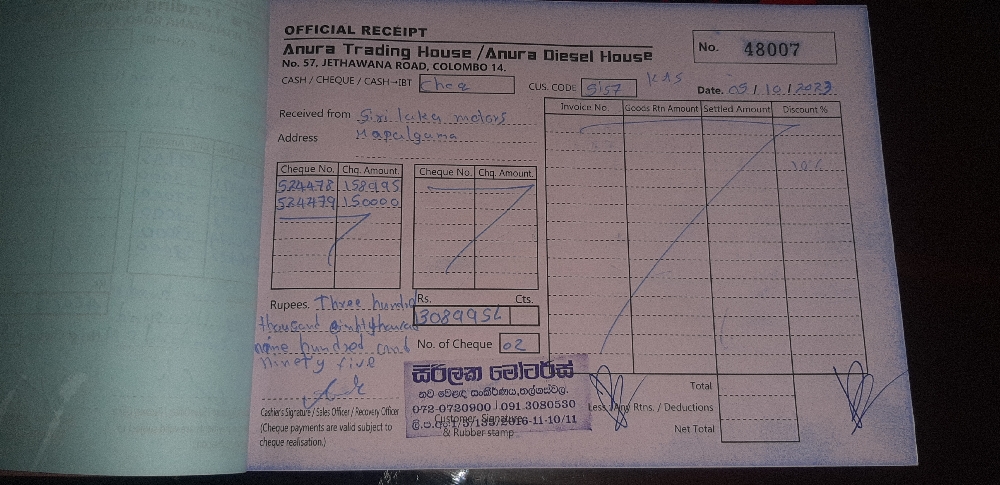 OFFICIAL RECEIPT
Anura Trading House /Anura Diesel House
No. 57, JETHAWANA ROAD, COLOMBO 14.
No. 48007
CASH / CHEQUE / CASH→IBT Cheq
CUS. CODE 5157 KAS
Date. 05/10/2023
Received from Siri laka motors
Address Mapalgama
Cheque No. Chq. Amount.
524478 158995
524479 150000
Cheque No. Chq. Amount.
Invoice No. Goods Rtn Amount Settled Amount Discount %
10%
Rupees. Three hundred
thousand eight thousand
nine hundred and
ninety five
Rs. Cts.
308995
No. of Cheque 02
Cashier's Signature / Sales Officer / Recovery Officer
(Cheque payments are valid subject to
cheque realisation.)
සිරිලක මෝටර්ස්
නව වෙළඳ සංකීර්ණය, තල්ගස්වල.
072-0720900 / 091 3080530
Customer Signature
& Rubber stamp
Total
Less : Any Rtns. / Deductions
Net Total